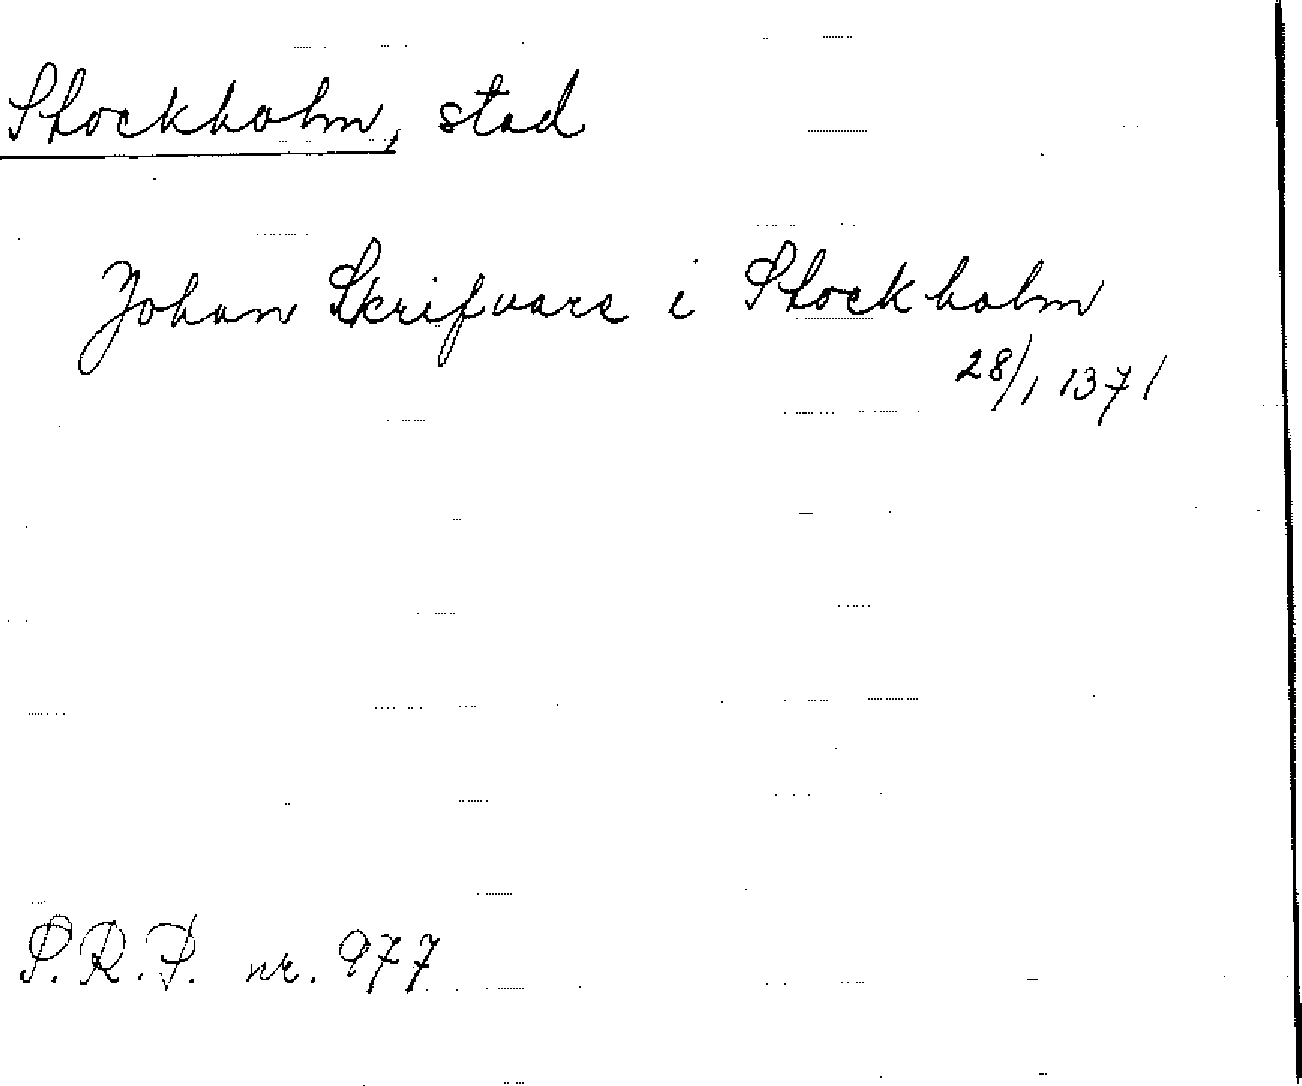 Stockholm, stad
Johan Skrifvare i Stockholm
28/1 1371
S.R.P. nr. 977